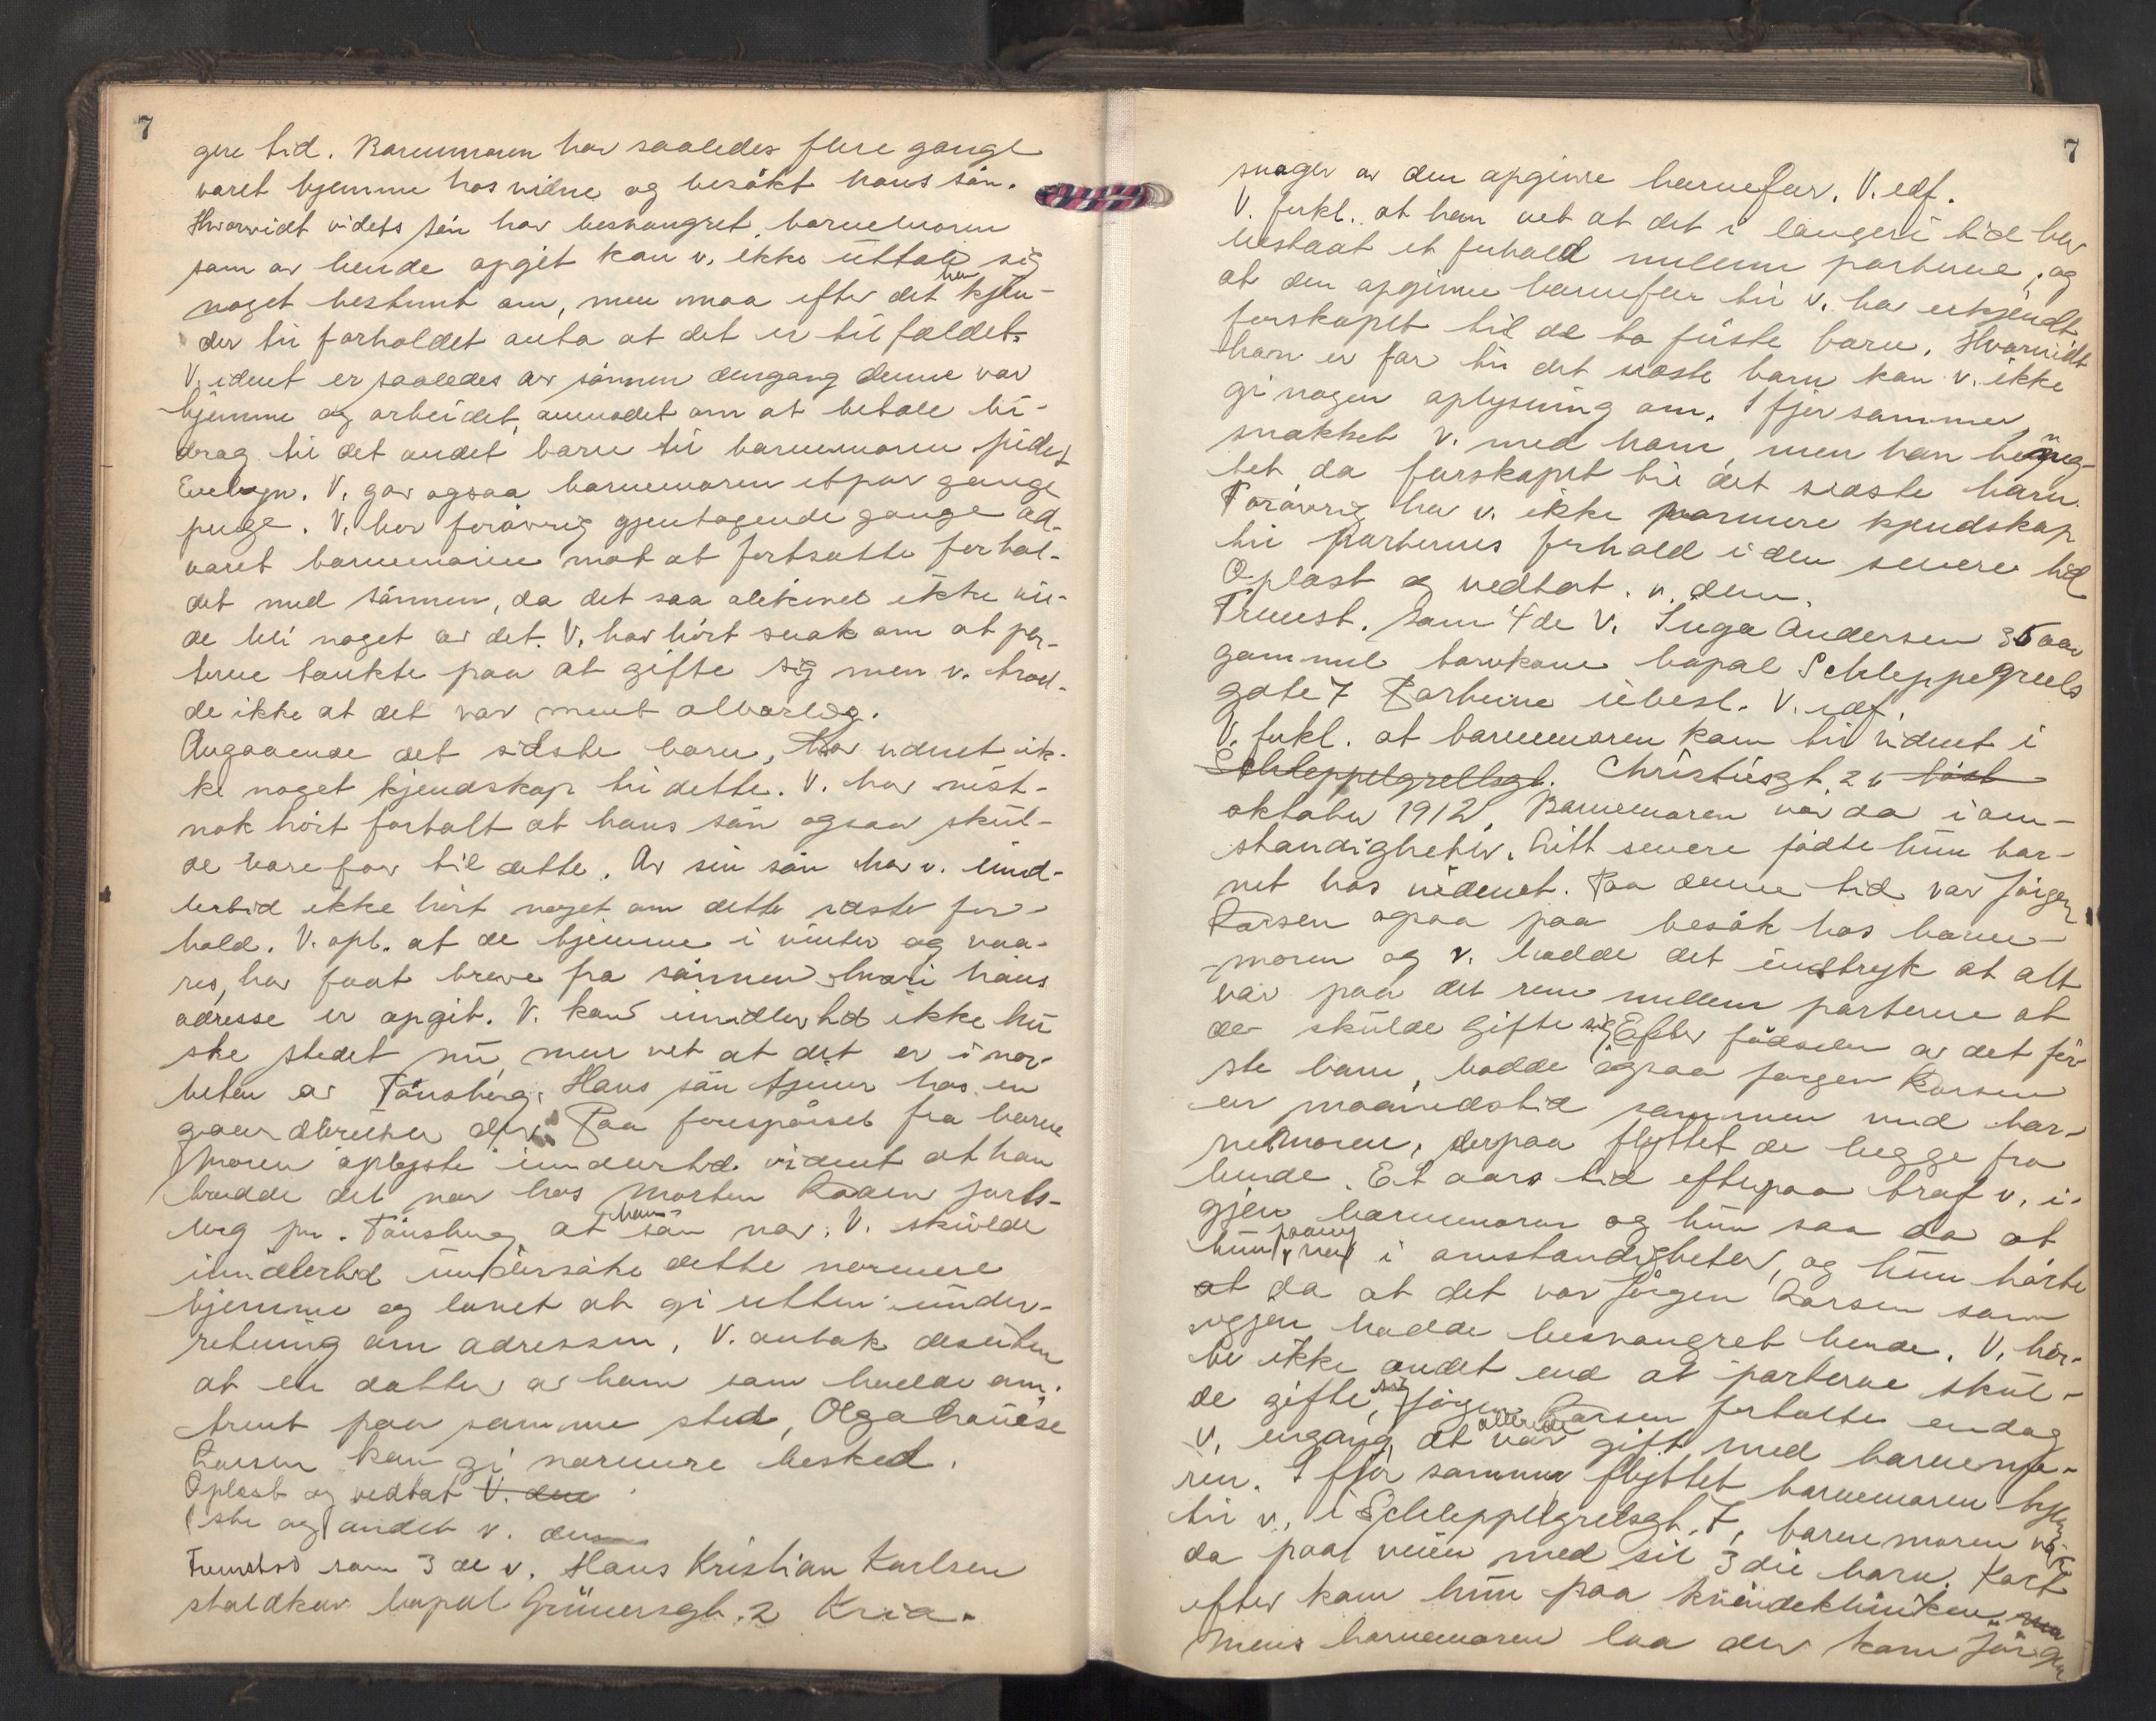 7
gere tid. Barnemoren har saaledes flere gange
været hjemme hos vidne og besøkt hans søn.
Hvorvidt vidnets søn har besvangret barnemoren
som av hende opgit kan v. ikke uttale sig
noget bestemt om, men maa efter det han kjen-
der til forholdet anta at det er tilfældet.
Vidnet er saaledes av sønnen dengang denne var
hjemme og arbeidet, anmodet om at betale bi-
drag til det andet barn til barnemoren
V. gav ogsaa barnemoren etpar gange
penge. V. har forøvrig gjentagende gange ad-
varet barnemoren mot at fortsætte forhol-
det med sønnen, da det saa allikevel ikke vil-
de bli noget av det. V. har hørt snak om at par-
terne tænkte paa at gifte sig men v. trod-
de ikke at det var ment alvorlig.
Angaaende det sidste barn, har vidnet ik-
ke noget kjendskap til dette. V. har nist-
nok hørt fortalt at hans søn ogsaa skul-
de være far til dette. Av sin søn har v. imid-
lertid ikke hørt noget om dette sidste for-
hold. V. opl. at de hjemme i vinter og vaa-
res, har faat breve fra sønnen hvori hans
adresse er opgit. V. kan imidlertid ikke hu
ske stedet nu, men vet at det er i nær-
heten av Tønsberg. Hans søn tjener hos en
gaardbruker der. Paa forespørsel fra barne
moren oplyste imidlertid vidnet at han
trodde det var hos Morten Raaen Jarls-
berg pr. Tønsberg at hans søn var. V. skulde
imidlertid undersøke dette nærmere
hjemme og lovet at gi retten under-
retning om adressen. V. antok desuten
at en datter av ham som hadde om-
trent paa samme sted, Olga Lovise
Larsen kan gi nærmere besked.
Oplæst og vedtat V. dem
1ste og andet v. dem
Fremstod som 3de v. Hans Kristian Karlsen
staldkar bopæl Grünersgt. 2 Kria.
7
svoger av den opgivne barnefar. V. edf.
V. forkl. at han vet at det i længere tid har
bestaat et forhold mellem parterne, og
at den opgivne barnefar til v. har erkjendt
farskapet til de to første barn. Hvorvidt
han er far til det næste barn kan v. ikke
gi nogen oplysning om. I fjor sommer
snakket v. med ham, men han benæg-
tet da farskapet til det sidste barn.
Forøvrig har v. ikke nærmere kjendskap
til parternes forhold i den senere tid
Oplæst og vedtat. v. dem.
Fremst. som 4de V. Inga Andersen 35 aar
gammel tarvkone bopæl Schleppegrells
gate 7 Parterne ubesl. V. edf.
V. forkl. at barnemoren kom til vidnet i
Schleppelgrellsgt. Christiesgt. 26 høst
oktober 1912. Barnemoren var da i om-
stændigheter. Litt senere fødte hun bar-
net hos vidnet. Paa denne tid var Jørgen
Larsen ogsaa paa besøk hos barne-
moren og v. hadde det indtryk at alt
var paa det rene mellem parterne at
de skulde gifte sig. Efter fødselen av det før
ste barn, bodde ogsaa Jørgen Larsen
en maanedstid sammen med bar-
nemoren, derpaa flyttet de begge fra
hende. Et aars tid efterpaa traf v. i-
gjen barnemoren og hun saa da at
hun paany var i omstændigheter, og hun hørte
at da at det var Jørgen Larsen som
igjen hadde besvangret hende. V. hør-
te ikke andet end at parterne skul-
de gifte sig, Jørgen Larsen fortalte endog
v. engang at var allerede gift med barnemo-
ren. I fjor sommer flyttet barnemoren hjem
til v. i Schleppelgrelsgt. 7, barnemoren var
da paa veien med sit 3die barn. Kort
efter kom hun paa kvindeklinikken
Mens barnemoren laa der kom Jørgen